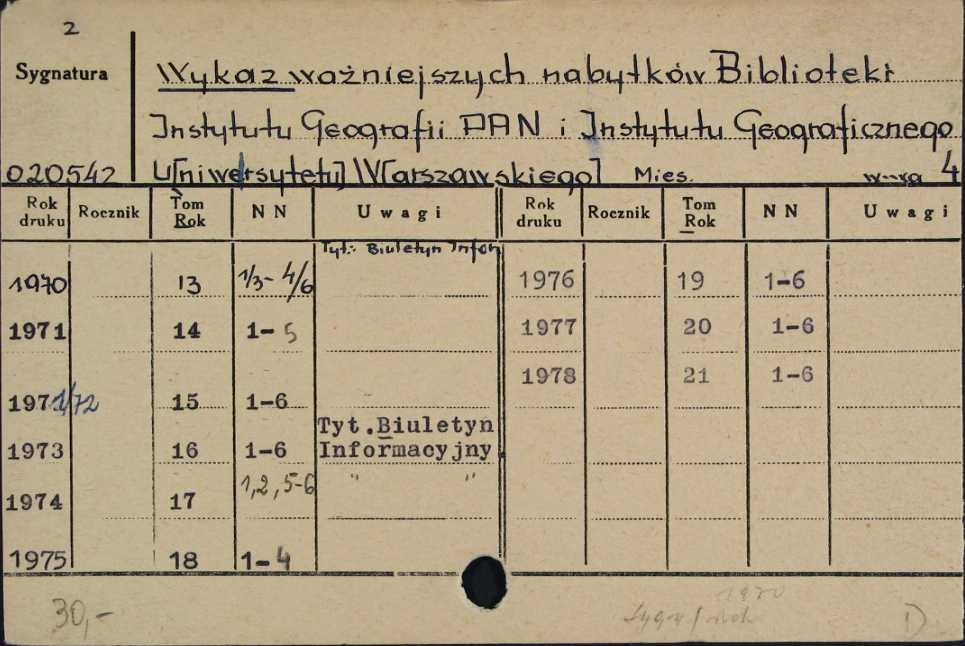 2
Sygnatura
Wykaz ważniejszych nabytków Biblioteki
Instytutu Geografii PAN i Instytutu Geograficznego
020542 U[niwersytetu] W[arszawskiego] Mies. w-wa 4
Rok druku Rocznik Tom Rok NN Uwagi Rok druku Rocznik Tom Rok NN Uwagi
Tyt.: Biuletyn Infor
1970 13 1/3-4/6 1976 19 1-6
1971 14 1-5 1977 20 1-6
1978 21 1-6
1971/72 15 1-6
Tyt.Biuletyn
1973 16 1-6 Informacyjny
1974 17 1,2,5-6 " "
1975 18 1-4
30,-
1970